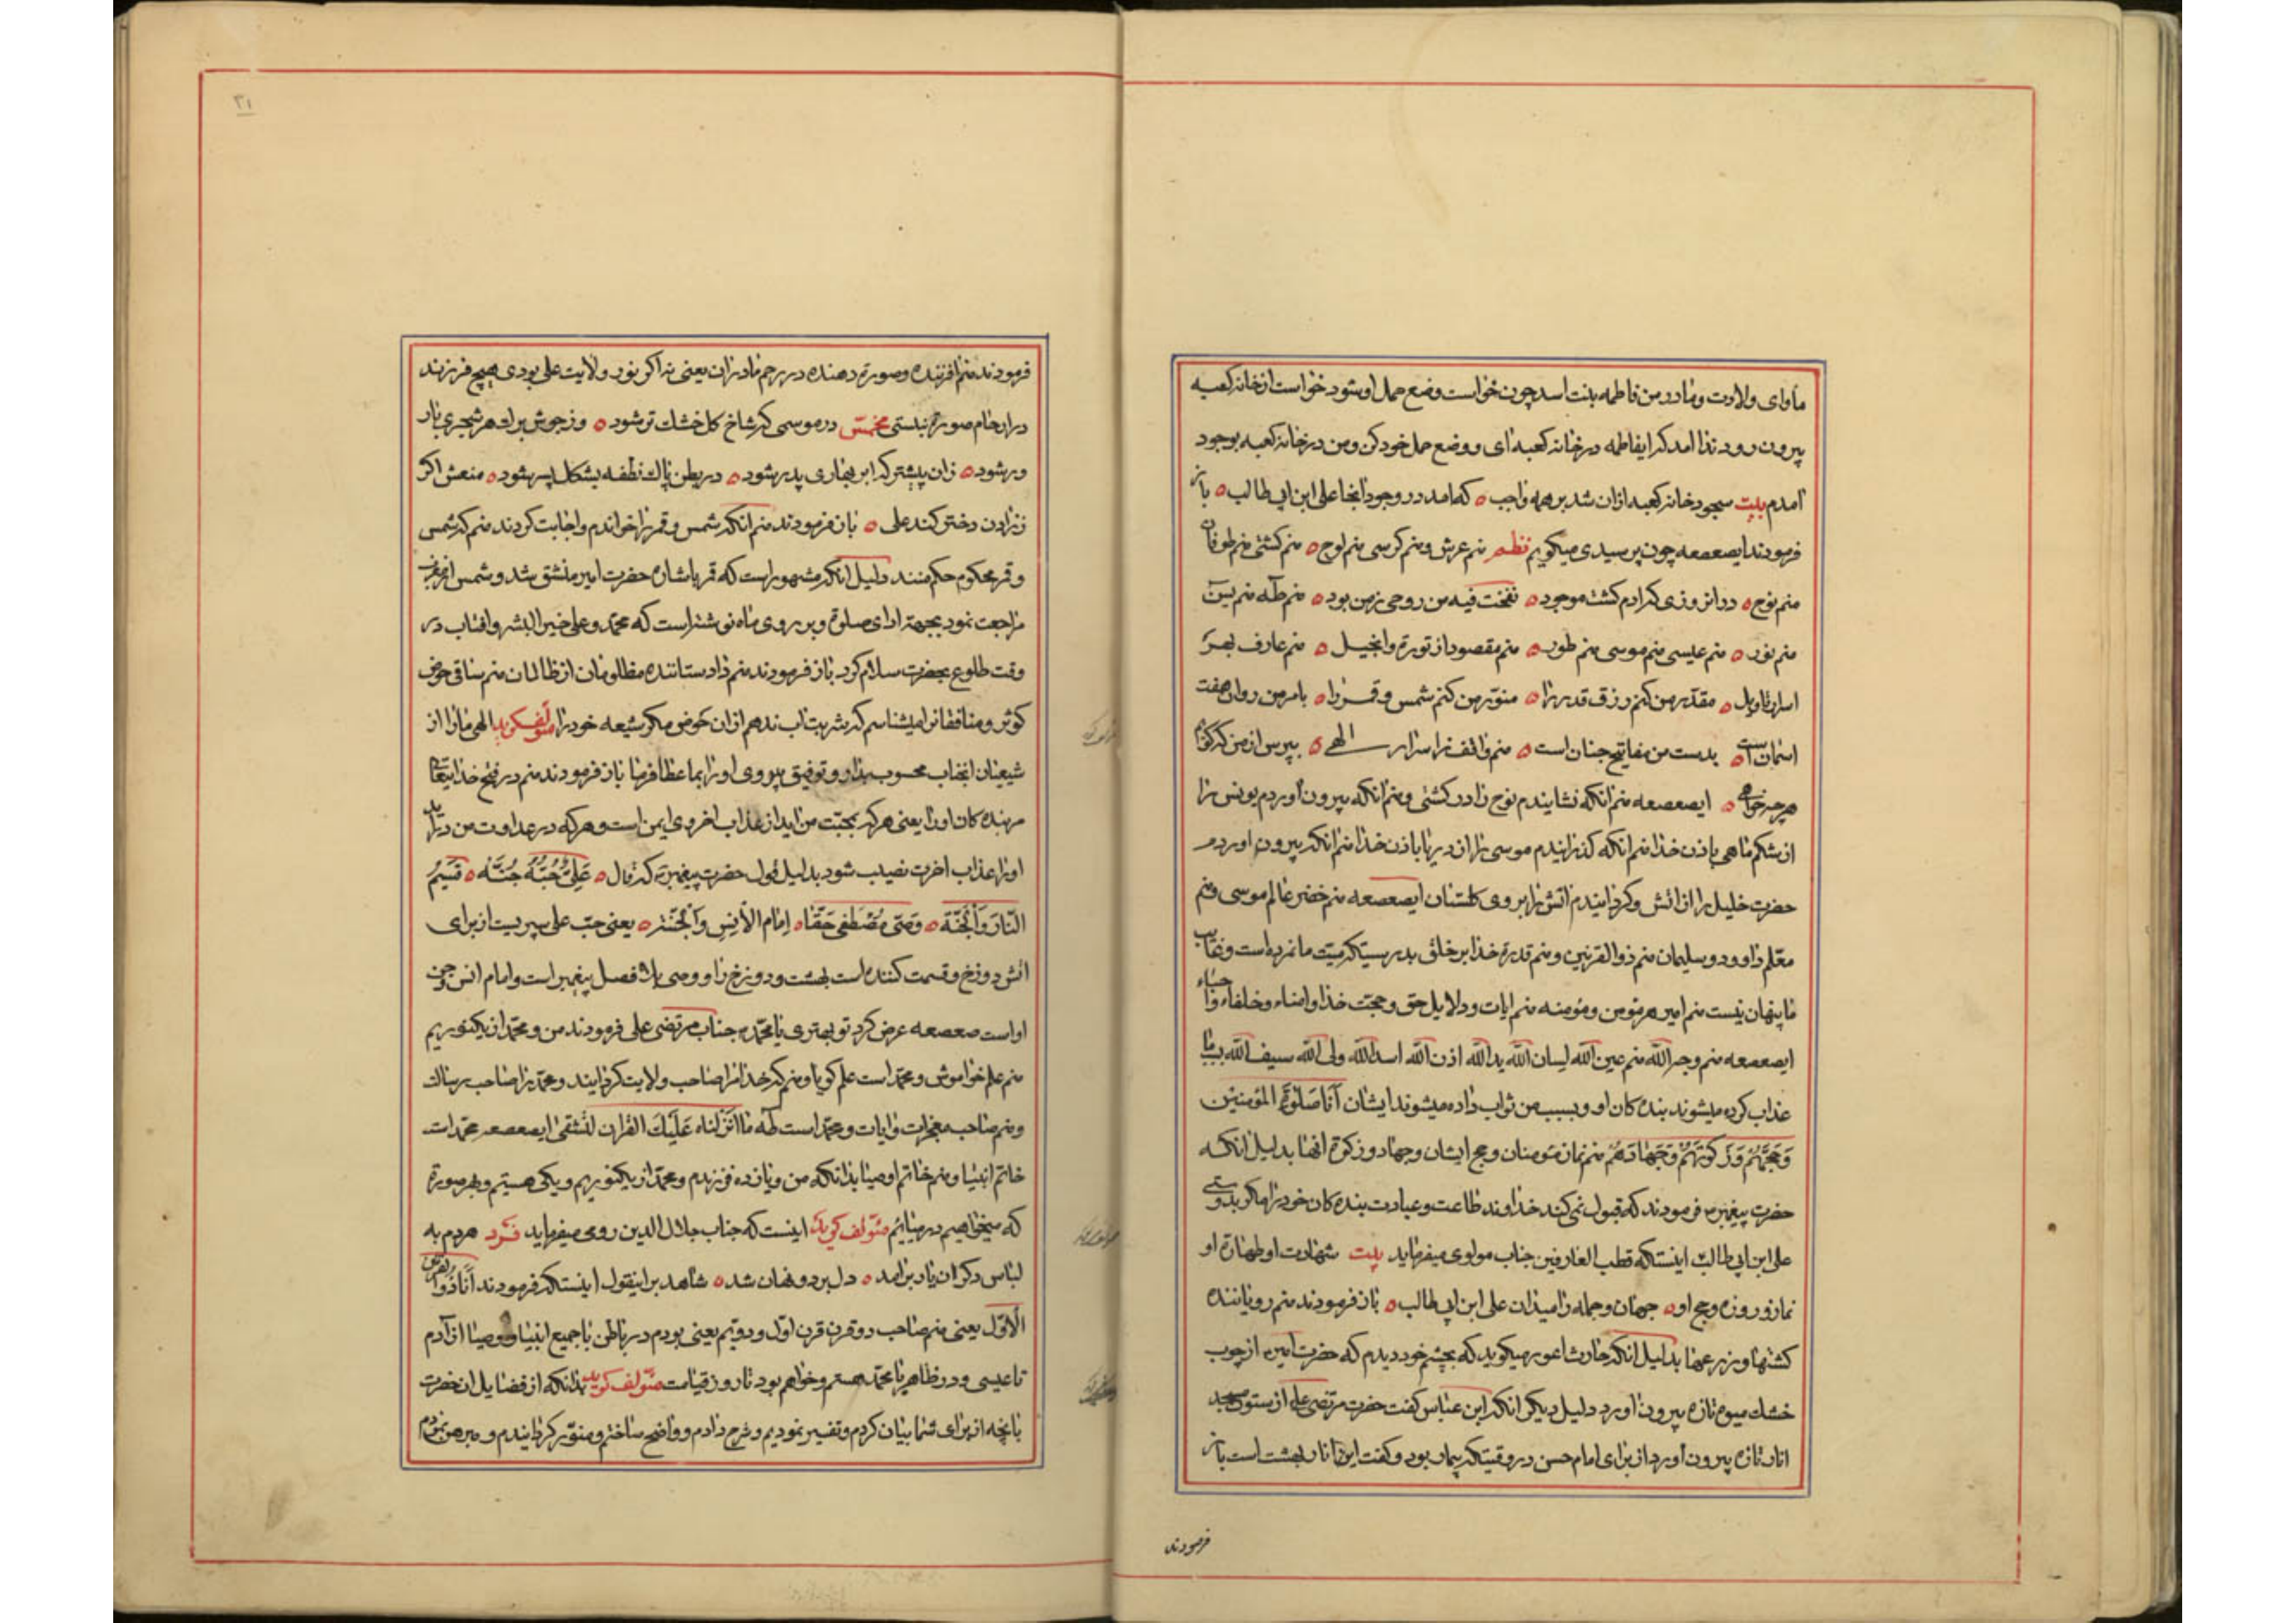 ماوای ولادت ومادر من فاطمه بنت اسد چون خواست وضع حمل او شود خواست از خانه کعبه
بیرون رود ندا امد که ایفاطمه در خانه کعبه ای و وضع حمل خود کن ومن در خانه کعبه بوجود
امدم بیت سجود خانه کعبه ازان شد بر همه واجب ه که امد در وجود انجا علی ابن ابی طالب ه باز
فرمودند ایصعصعه چون پرسیدی میگویم نظم منم عرش ومنم کرسی منم لوح ه منم کشتی منم طوفان
منم نوح ه در انروزی که ادم کشت موجود ه نفخت فیه من روحی زمن بود ه منم طه منم یس
منم نور ه منم عیسی منم موسی منم طور ه منم مقصود از توریة وانجیل ه منم عارف بهر
اسرار تاویل ه مقدر من کنم رزق قدر را ه منور من کنم شمس وقمر را ه بامر من روان هفت
اسمان است ه بدست من مفاتیح جنان است ه منم واقف ز اسرار الهی ه بپرس از من که گویم
هرچه خواهی ه ایصعصعه منم انکه نشاندیم نوح را در کشتی ومنم انکه بیرون اوردم یونس را
از شکم ماهی باذن خدا منم انکه گذرانیدم موسی را از دریا باذن خدا منم انکه بیرون اوردم
حضرت خلیل را از اتش وگردانیدم اتش را بروی گلستان ایصعصعه منم خضر عالم موسی ومنم
معلم داوود و سلیمان منم ذوالقرنین ومنم قدرة خدا بر خلق بدرستیکه میت ما نمرده است وغایب
ما پنهان نیست منم امیر هر مؤمن ومؤمنه منم ایات ودلایل حق وحجت خدا وامناء وخلفاء واحباء
ایصعصعه منم وجه الله منم عین الله لسان الله ید الله اذن الله اسد الله ولی الله سیف الله بما
عذاب کرده میشوند بنده کان او وبسبب من ثواب داده میشوند ایشان أنا صلوة المؤمنین
وحجهم وزکوتهم وجهادهم منم نماز مؤمنان وحج ایشان وجهاد وزکوة انها بدلیل انکه
حضرت پیغمبر فرمودند که قبول نمی کند خداوند طاعت وعبادت بنده کان خود را مگر بدوستی
علی ابن ابی طالب اینستکه قطب العارفین جناب مولوی میفرماید بیت شهادت او طهارة او
نماز وروزه وحج او ه جهان وجمله را میدان علی ابن ابی طالب ه باز فرمودند منم رویاننده
کشتها وزرعها بدلیل انکه حارث اعور میگوید که بچشم خود دیدم که حضرت امیر از چوب
خشك میوه تازه بیرون اورد دلیل دیگر انکه ابن عباس گفت حضرت مرتضی علی از ستون مسجد
انار تازه بیرون اورد از برای امام حسن در وقتیکه بیمار بود وگفت این انار بهشت است باز
فرمودند
۳۱
فرمودند منم افریننده وصورة دهنده در رحم مادران یعنی نه اگر نور ولایت علی بودی هیچ فرزند
در ارحام صورة نبستی مخمس در موسمی که شاخ گل خشك تر شود ه وز جوش برك هر شجری بار
ور شود ه زان پیشتر که ابر بهاری پدر شود ه در بطن پاك نطفه بشکل پسر شود ه منعش اگر
ززادن دختر کند علی ه باز فرمودند منم انکه شمس وقمر را خواندم واجابت کردند منم که شمس
وقمر محکوم حکم منند دلیل انکه مشهور است که قمر باشاره حضرت امیر منشق شد وشمس از مغرب
مراجعت نمود بجهة ادای صلوة وبر روی ماه نوشته است که محمد وعلی خیر البشر وافتاب در
وقت طلوع بحضرت سلام کرد باز فرمودند منم داد ستاننده مظلومان از ظالمان منم ساقی حوض
کوثر ومنافقانرا میشناسم که شربت اب ندهم ازان حوض مگر شیعه خود را مؤلف گوید الهی مارا از
شیعیان انجناب محسوب بدار وتوفیق پیروی او را بما عطا فرما باز فرمودند منم در فتح خدایتعالی
مر بنده کان او را یعنی هر که بمحبت من اید از عذاب اخروی ایمن است وهر که در عداوت من در اید
او را عذاب اخرت نصیب شود بدلیل قول حضرت پیغمبر که قال ه عَلِیٌّ حُبُّهُ جُنَّه ه قَسیمُ
النّار وَالجَنَّة ه وَصیّ مُصْطَفی حَقّا ه اِمام الأنِسِ وَالجنَّة ه یعنی حب علی سپریست از برای
اتش دوزخ وقسمت کننده است بهشت ودوزخ را ووصی بلا فصل پیغمبر است وامام انس وجن
او است صعصعه عرض کرد تو بهتری یا محمد جناب مرتضی علی فرمودند من ومحمد از یکنوریم
منم علم خواموش ومحمد است علم گویا ومنم که خدا مرا صاحب ولایت گردانید ومحمد را صاحب رسالت
ومنم صاحب معجزات وایات ومحمد است طه ما انزلناه عَلَیكَ القران لتشقی ایصعصعه محمد است
خاتم انبیا ومنم خاتم اوصیا بدانکه من ویازده فرزندم ومحمد از یکنوریم ویکی هستیم وبهر صورة
که میخواهیم در میائیم مؤلف گوید اینست که جناب جلال الدین رومی میفرماید فرد هر دم به
لباس دگر ان یار برامد ه دل برد ونهان شد ه شاهد بر اینقول اینستکه فرمودند أنا ذُو القرن
الاوّل یعنی منم صاحب دو قرن قرن اوّل ودویم یعنی بودم در باطن با جمیع انبیا واوصیا از آدم
تا عیسی ودر ظاهر با محمد هستم وخواهم بود تا روز قیامت مؤلف گوید بدانکه از فضایل ان حضرت
بانچه از برای شما بیان کردم وتفسیر نمودیم وشرح دادم وواضح ساختم ومنور گردانیدم ومبرهن نمودم